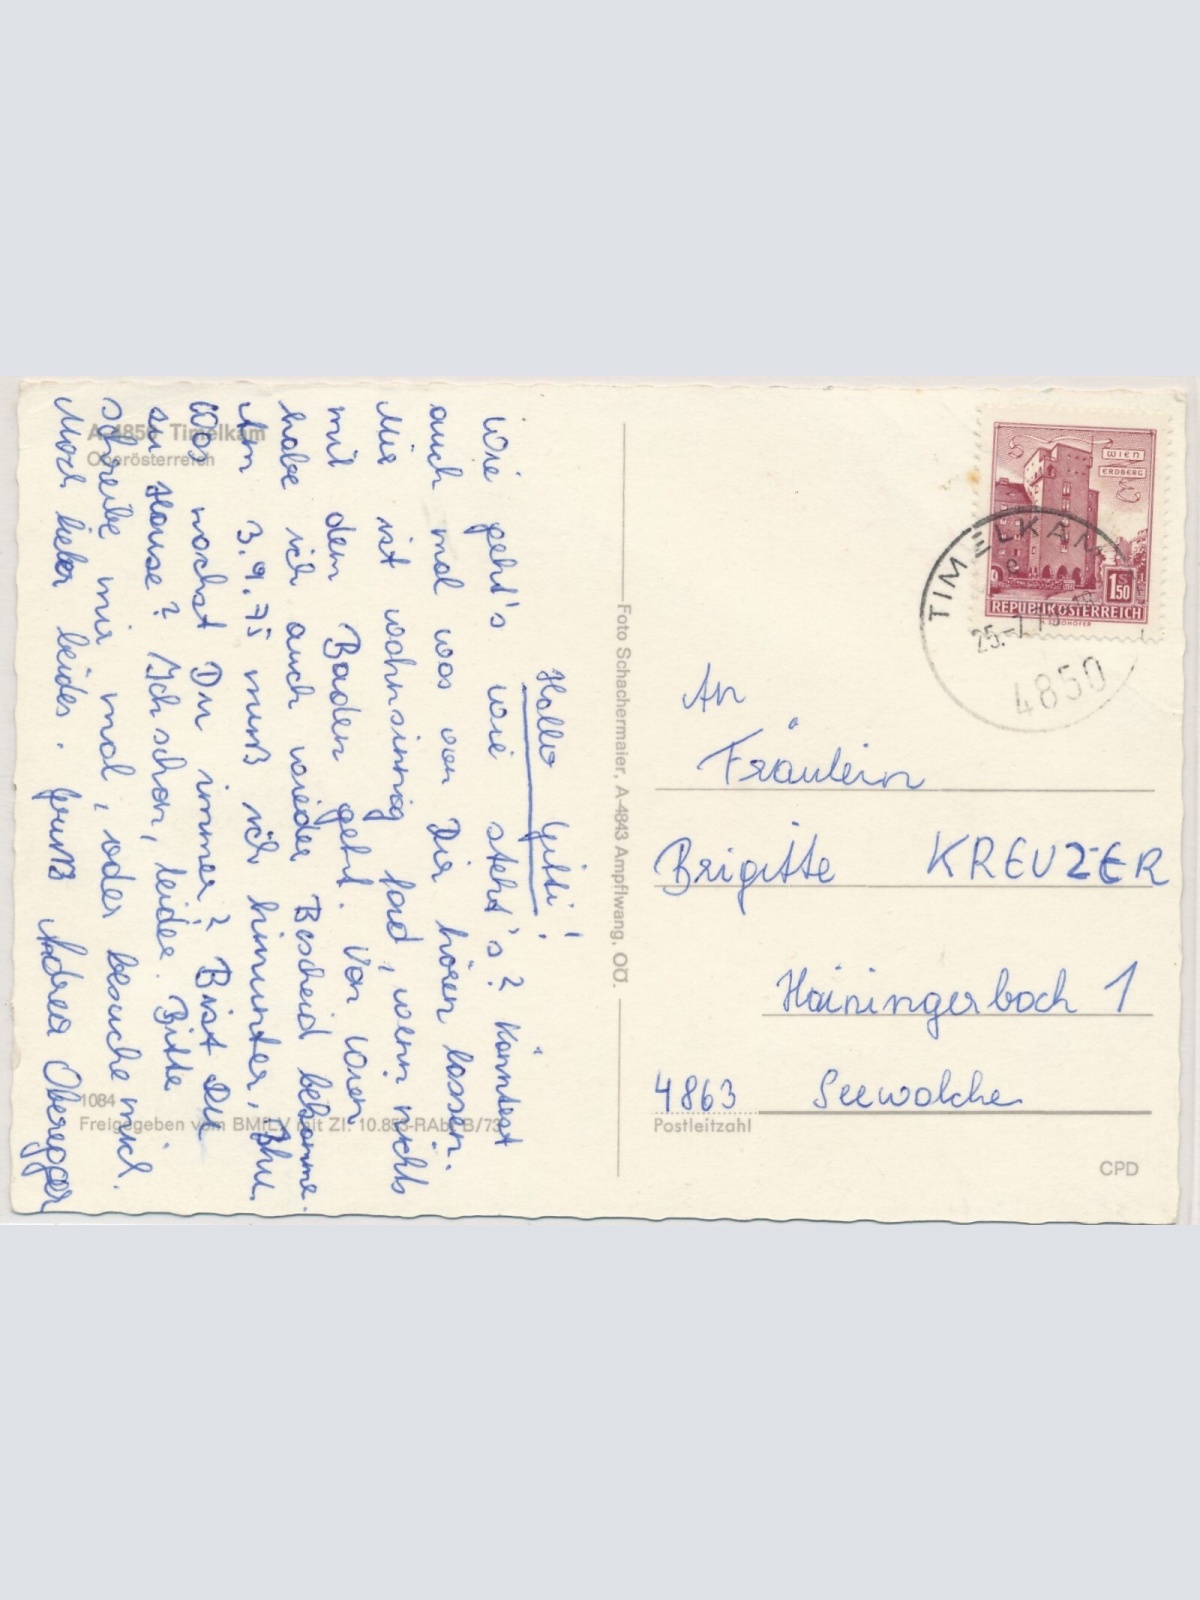 A-4850 Timelkam
Oberösterreich
Hallo Gitti!
Wie geht's wie steht's? Könntest
auch mal was von Dir hören lassen.
Mir ist wahnsinnig fad, wenn nichts
mit dem Baden geht. Von Wien
habe ich auch wieder Bescheid bekomme.
Am 3.9.75 muß ich hinunter, Bhu.
Was machst Du immer? Bist Du
zu Hause? Ich schon, leider. Bitte
schreibe mir mal, oder besuche mich.
Noch lieber beides. Gruß Andrea Oberegger
1084
Freigegeben vom BMfLV mit Zl. 10.853-RAbt B/73
Foto Schachermaier, A-4843 Ampflwang, OÖ.
WIEN
ERDBERG
1S50
REPUBLIK ÖSTERREICH
TIMELKAM
c
25.-7.75
4850
An
Fräulein
Brigitte KREUZER
Hainingerbach 1
4863 Seewalche
Postleitzahl
CPD